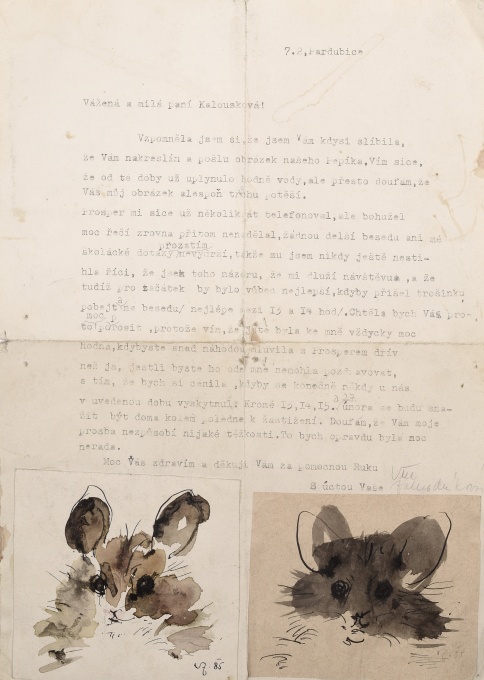 7.2, Pardubice
Vážená a milá paní Kalousková!
Vzpomněla jsem si, že jsem Vám kdysi slíbila,
že Vám nakreslím a pošlu obrázek našeho Pepíka, Vím sice,
že od té doby už uplynulo hodně vody, ale přesto doufám, že
Vás můj obrázek alespoň trohu potěší.
Prosper mi sice už několikrát telefonoval, ale bohužel
moc řečí zrovna přitom nenadělal, žádnou delší besedu ani mé
prozatím
školácké dotazy nevydrží, takže mu jsem nikdy ještě nesti-
hla říci, že jsem toho názoru, že mi dluží návštěvu, a že
tudíž pro začátek by bylo vůbec nejlepší, kdyby přišel trošinku
pobejt na besedu/ nejlépe mezi 13 a 14 hod/. Chtěla bych Vás pro-
moc
to poprosit, protože vím, že jste byla ke mně vždycky moc
hodná, kdybyste snad náhodou mluvila s Prosperem dřív
než já, jestli byste ho ode mne nemohla pozdravovat,
s tím, že bych si cenila, kdyby se konečně někdy u nás
v uvedenou dobu vyskytnul: Kromě 13, 14, 15. února se budu sna-
žit být doma kolem poledne k zastižení. Doufám, že Vám moje
prosba nezpůsobí nijaké těžkosti. To bych opravdu byla moc
nerada.
Moc Vás zdravím a děkuji Vám za pomocnou Ruku
S úctou Vaše
85